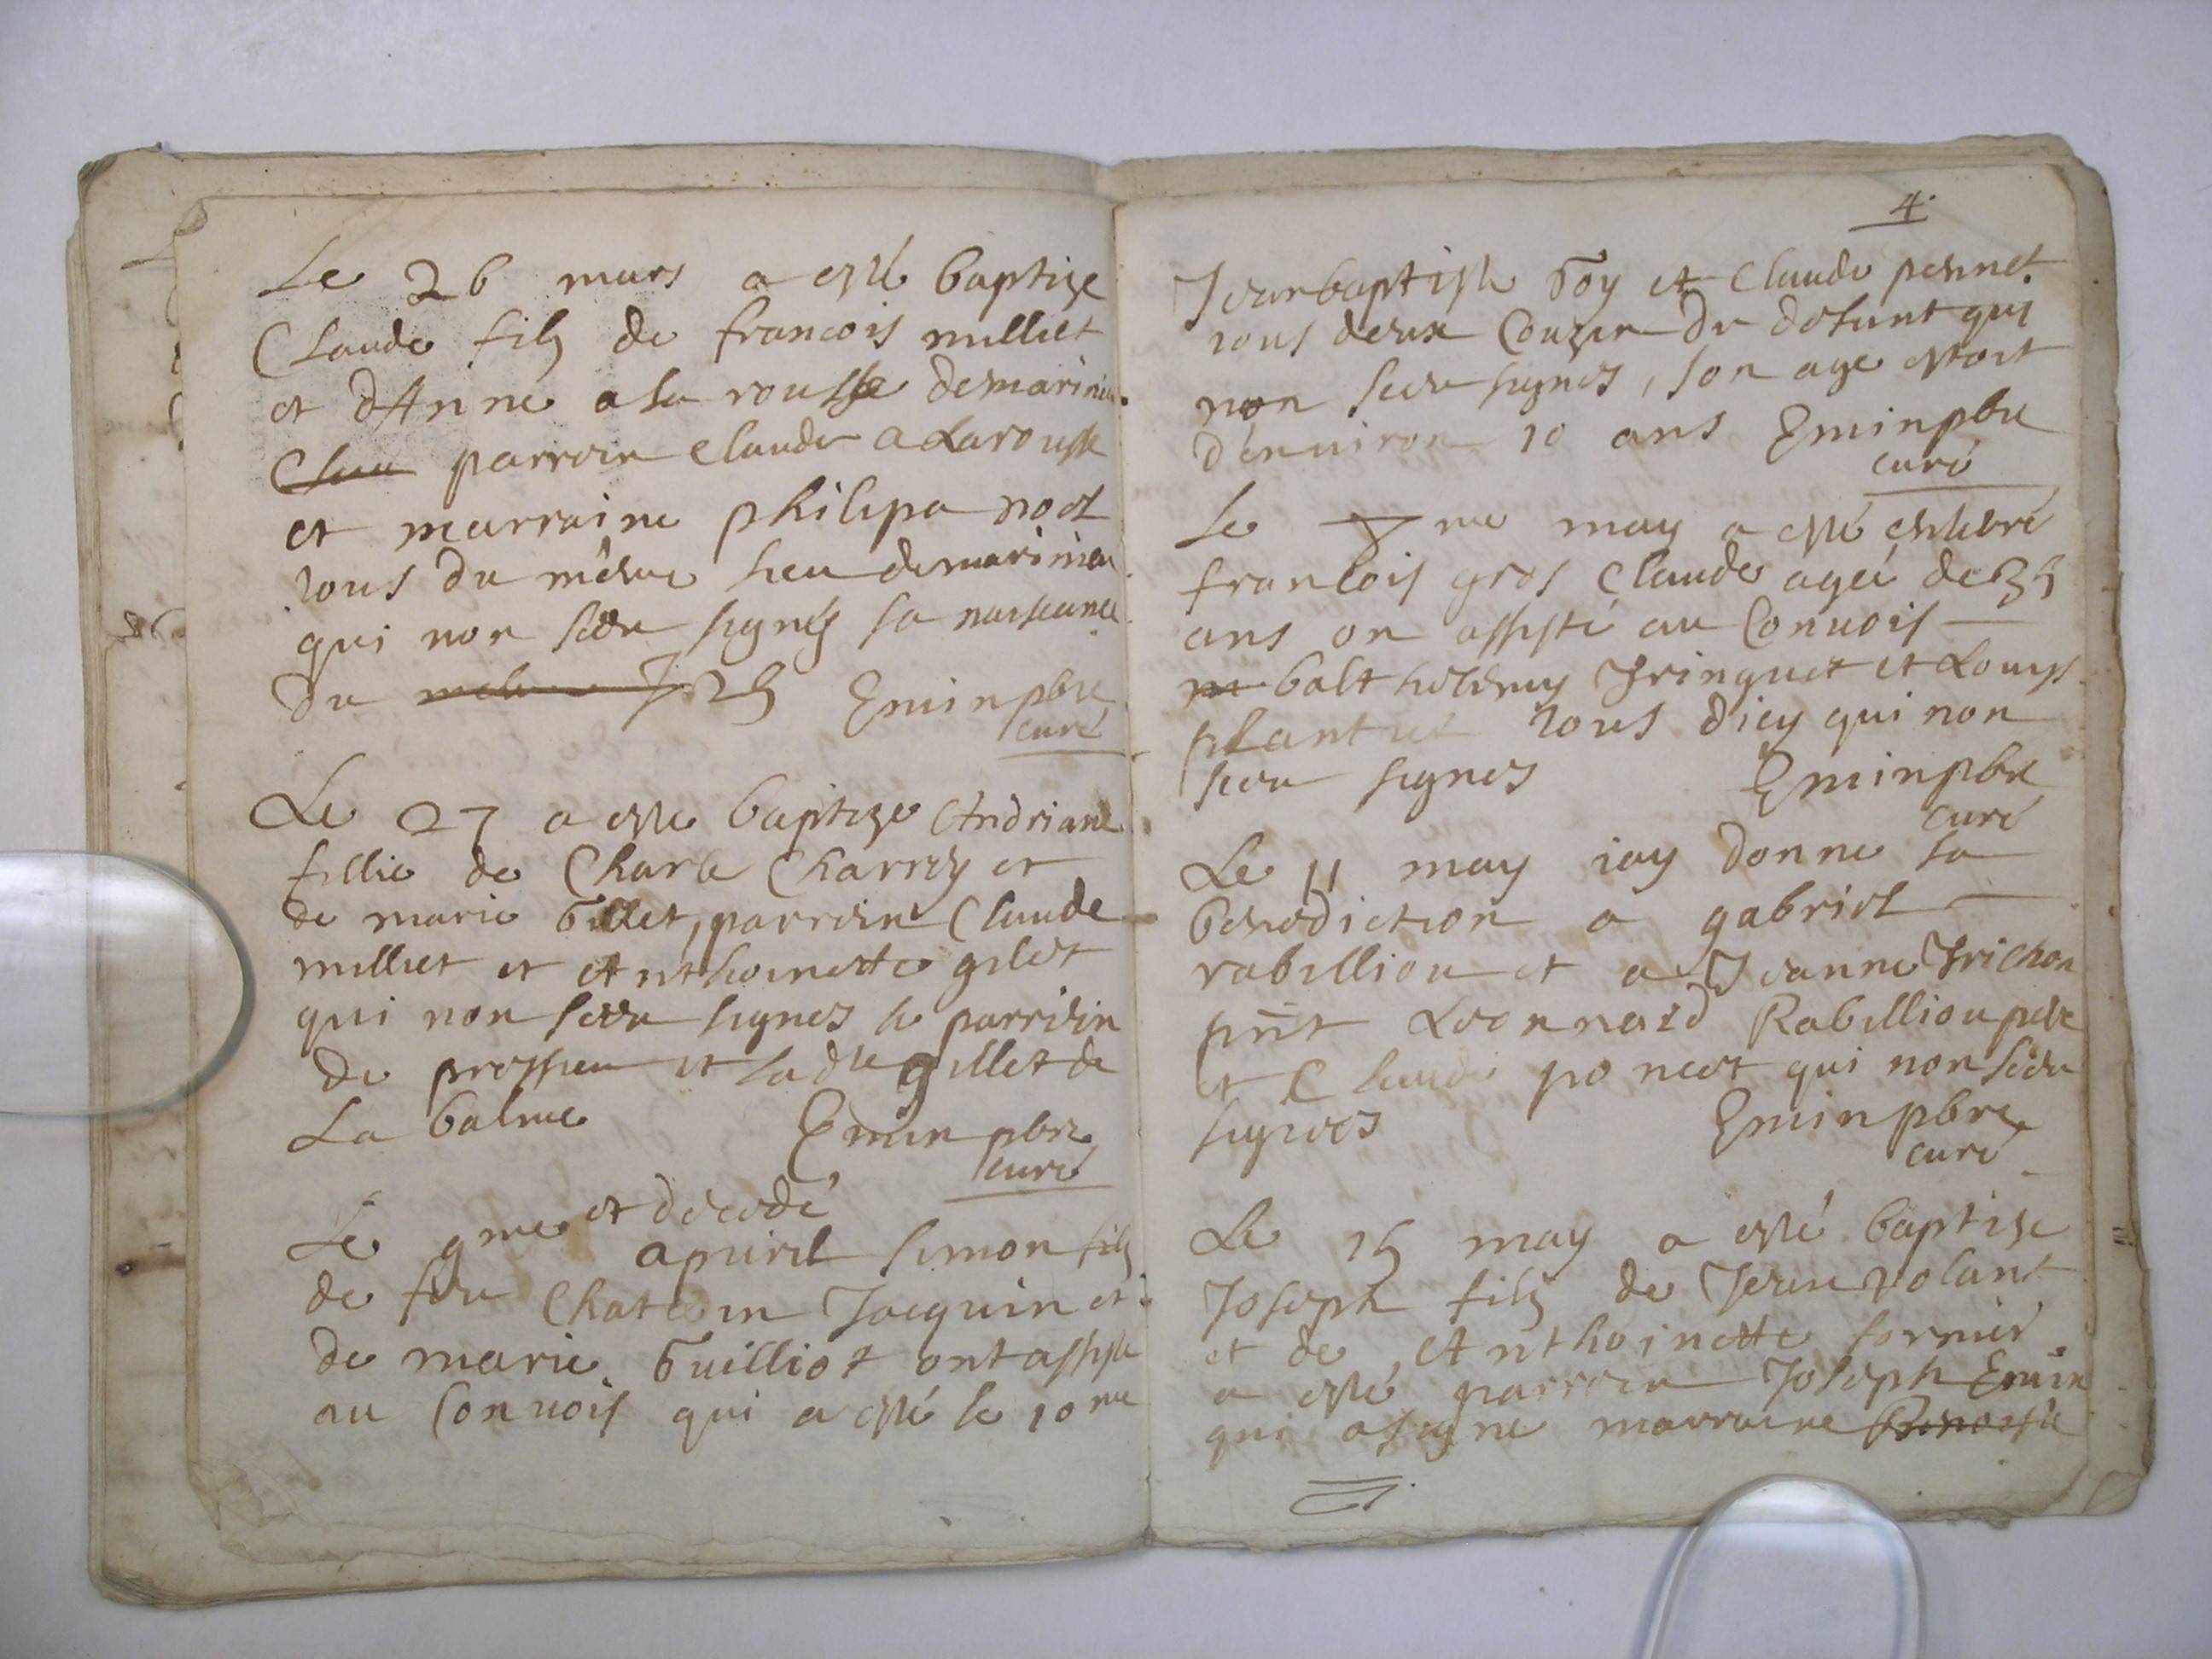 Le 26 mars a esté baptize
Claude filz de francois milliet
et dAnne a la rousse demarinieu
Clau parrein claude a Larousse
et marraine philipa noel
tous du mesme lieu demarinieu
qui non sceu signés sa naissance
du 25 Emin pbre
curé
Le 27 a esté baptize Andriane
fillie de Charle Charrey et
de marie Gillet, parrein Claude
milliet et Anthoinette gilet
qui non sceu signes le parrein
de pressieu et la dte gillet de
La balme Emin pbre
curé
et decedé
Le 9me apuril simon filz
de feu Jacquin et
de marie Guilliot ont assisté
au Conuois qui a esté le 10me
4.
Jeanbaptiste Goy et Claude pernet
tous deux Couzin du defunt qui
non sceu signes, son age estoit
d'enuiron 10 ans Emin pbre
curé
Le 7me may a esté enterré
francois gros Claude agé de 35
ans on assisté au Conuois
balthelemy Tringuet et Louys
plantié tous d'icy qui non
sceu signes Emin pbre
curé
Le 11 may iay donne la
benediction a gabriel
rabilliou et a Jeanne Trichon
pnt Leonnard Rabilliou pere
et Claude poncet qui non sceu
signes Emin pbre
curé
Le 15 may a esté baptise
Joseph filz de Jean volant
et de Anthoinette fornier
a esté parrein Joseph Emin
qui a signe marraine